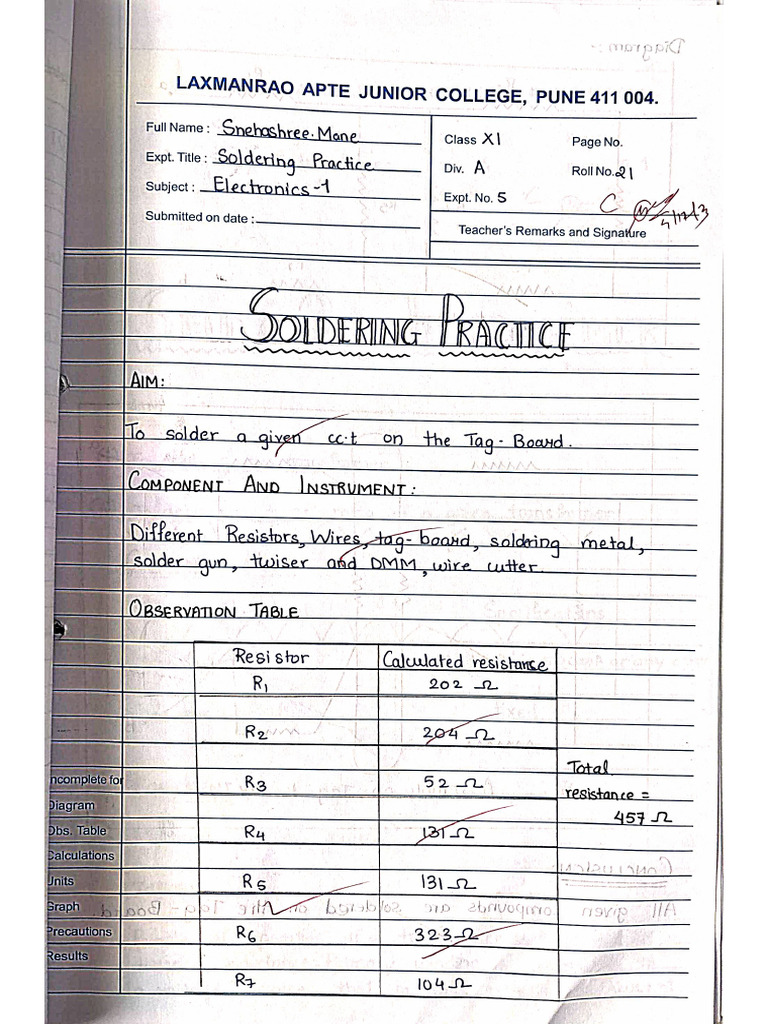 LAXMANRAO APTE JUNIOR COLLEGE, PUNE 411 004.
Full Name : Snehashree. Mane
Expt. Title : Soldering Practice
Subject : Electronics-1
Submitted on date :
Class XI
Page No.
Div. A
Roll No. 21
Expt. No. 5
C
Teacher's Remarks and Signature
SOLDERING PRACTICE
AIM:
To solder a given cc.t on the Tag-Board.
COMPONENT AND INSTRUMENT:
Different Resistors, Wires, tag-board, soldring metal,
solder gun, twiser and DMM, wire cutter.
OBSERVATION TABLE
Resistor Calculated resistance
R1 202 Ω
R2 204 Ω
R3 52 Ω
R4 131 Ω
R5 131 Ω
R6 323 Ω
R7 104 Ω
Total
resistance =
457 Ω
ncomplete for
Diagram
Obs. Table
Calculations
Units
Graph
Precautions
Results